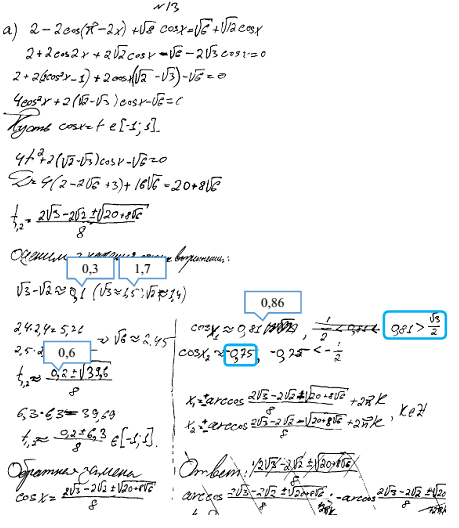 №13
а) 2 - 2cos(π - 2x) + √8 cosx = √6 + √12 cosx
2 + 2cos2x + 2√2 cosx - √6 - 2√3 cosx = 0
2 + 2(2cos²x - 1) + 2cosx(√2 - √3) - √6 = 0
4cos²x + 2(√2 - √3)cosx - √6 = 0
Пусть cosx = t ∈ [-1; 1].
4t² + 2(√2 - √3)cosx - √6 = 0
D = 4(2 - 2√6 + 3) + 16√6 = 20 + 8√6
t₁,₂ = (2√3 - 2√2 ± √(20+8√6))/8
Оценим
0,3 1,7
√3 - √2 ≈ 0,1 (√3 ≈ 1,5; √2 ≈ 1,4)
2,4·2,4 = 5,76
2,5·2 ⇒ √6 ≈ 2,45
0,6
t₁,₂ ≈ (0,2 ± √39,6)/8
6,3·6,3 = 39,69
t₁,₂ ≈ (0,2 ± 6,3)/8 ∈ [-1; 1].
Обратная замена
cosx = (2√3 - 2√2 ± √(20+8√6))/8
0,86
cosx₁ ≈ 0,81 0,81 > √3/2
cosx₂ ≈ -0,75, -0,75 < -1/2
x₁ = ± arccos (2√3 - 2√2 + √(20+8√6))/8 + 2πk
x₂ = ± arccos (2√3 - 2√2 - √(20+8√6))/8 + 2πk , k∈Z
Ответ: (2√3 - 2√2 ± √(20+8√6))/8
arccos (2√3 - 2√2 + √(20+8√6))/8 - arccos (2√3 - 2√2 + √(20+8√6))/8